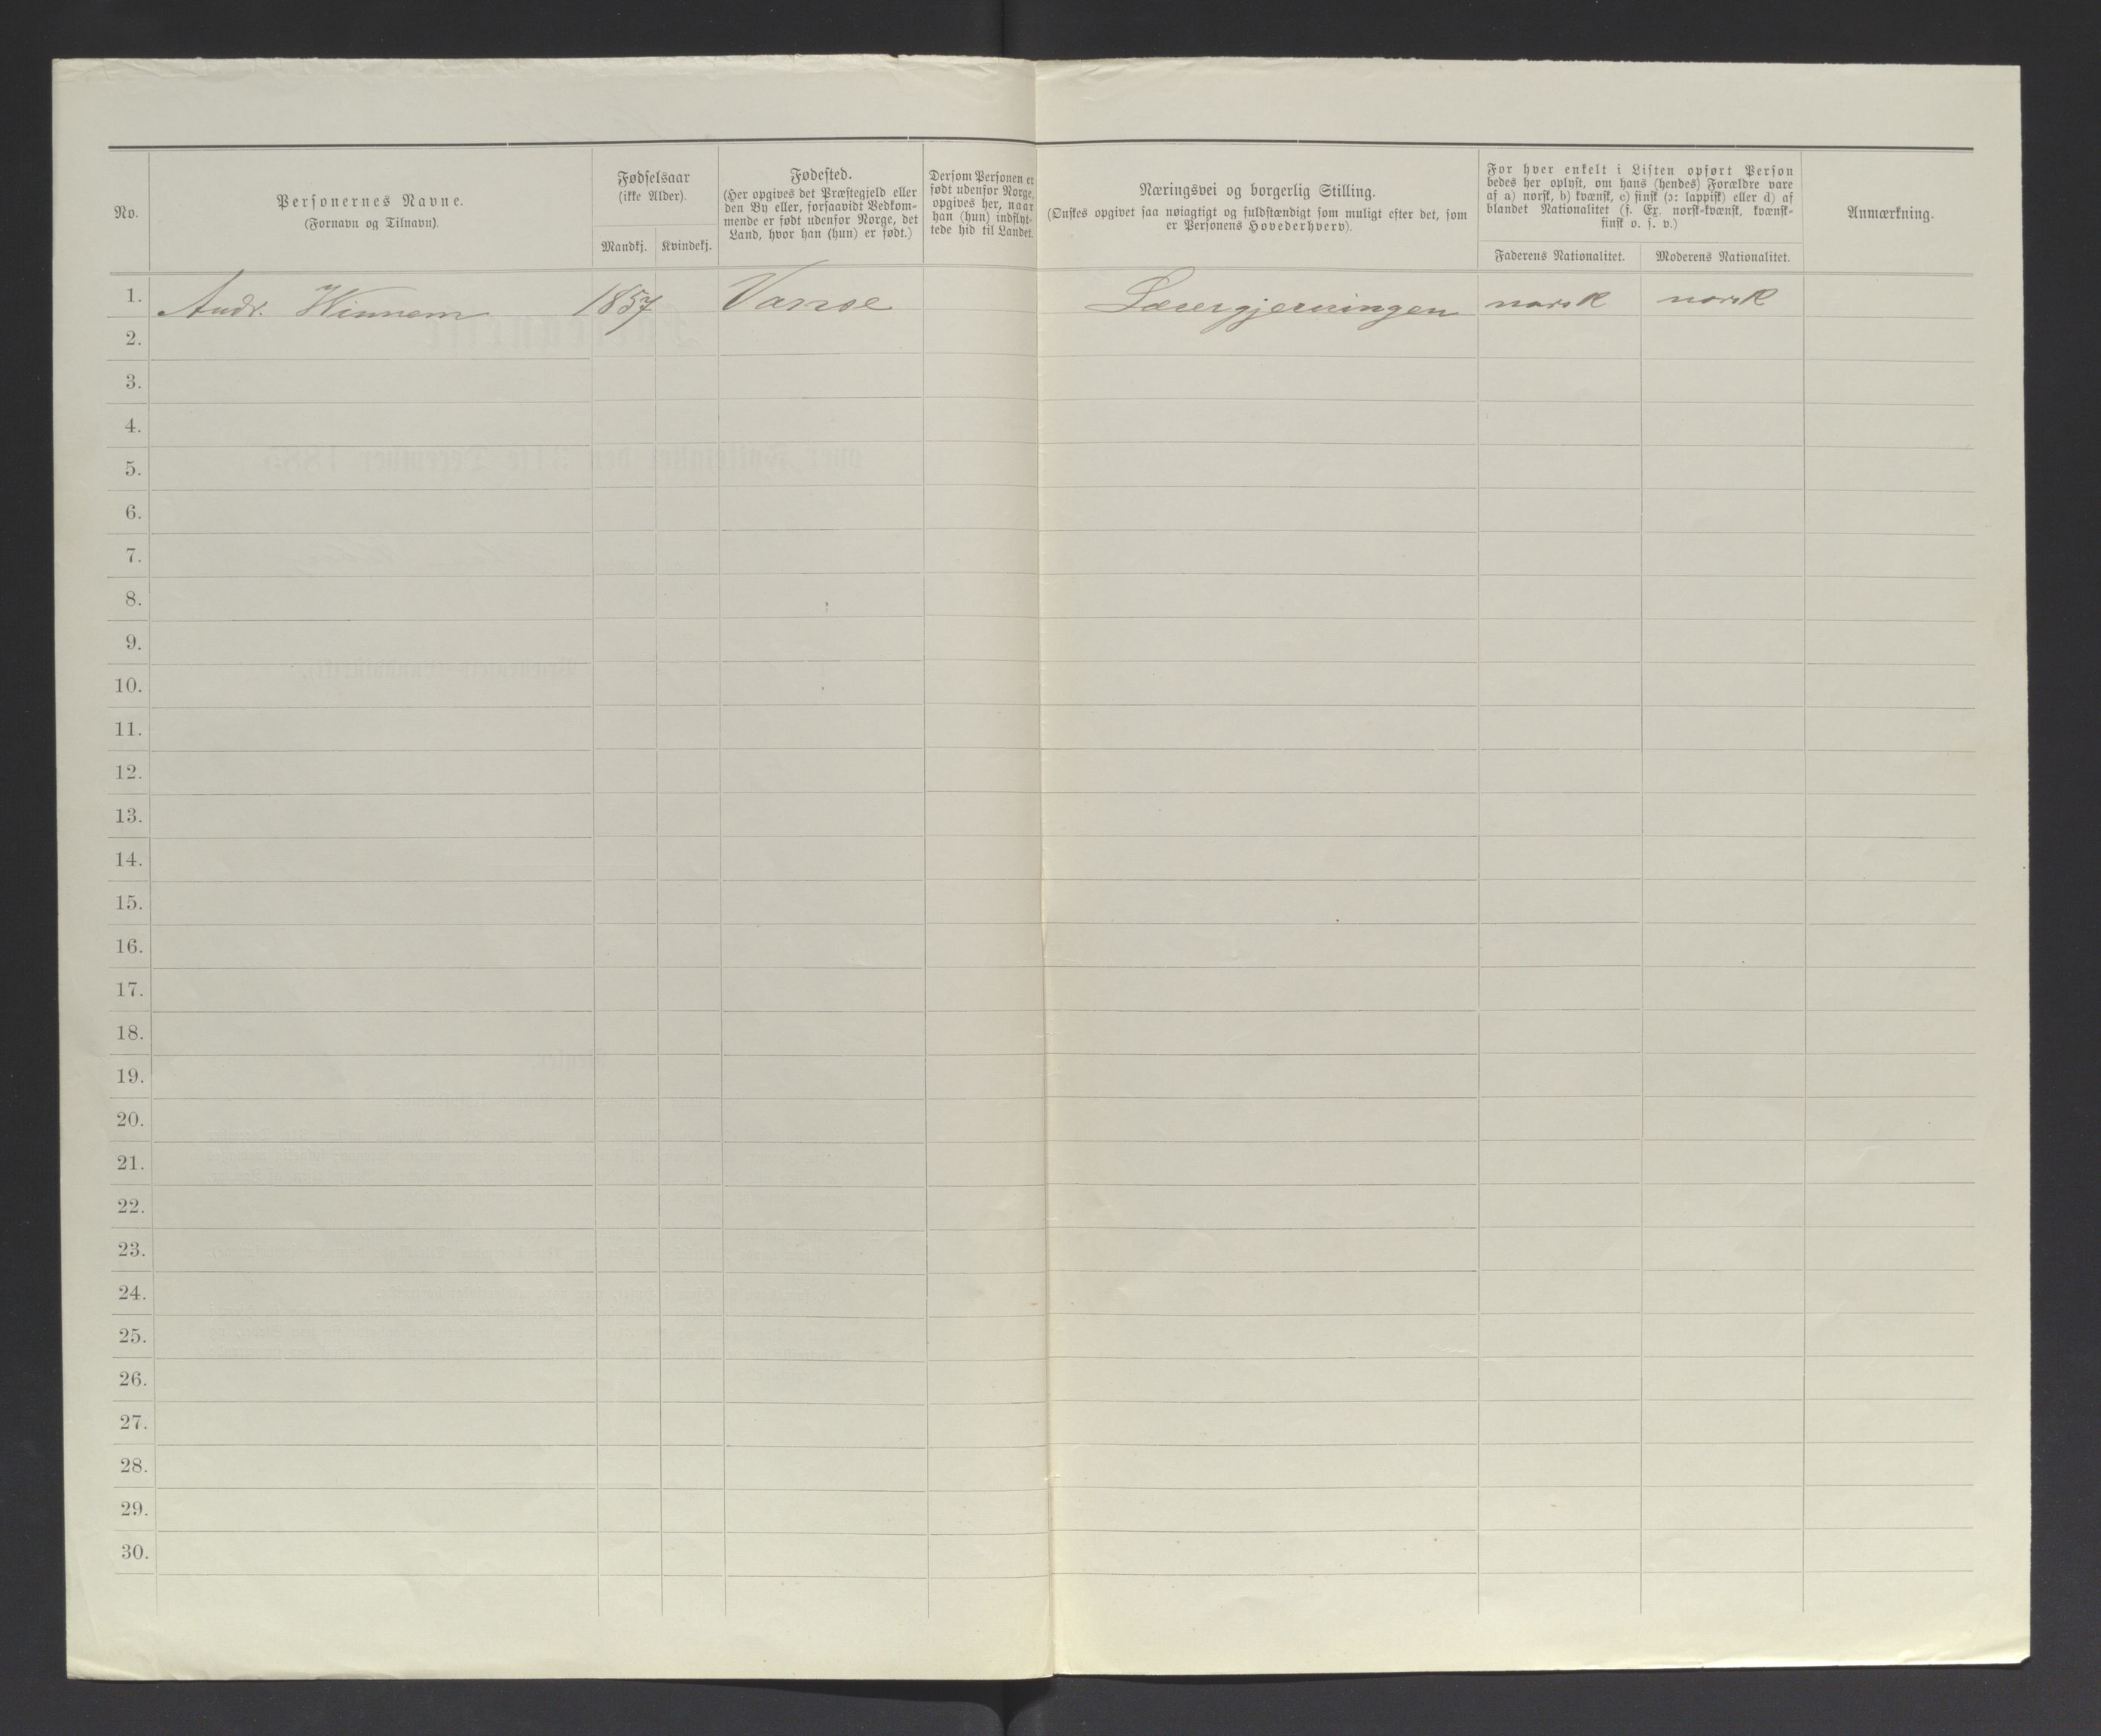 No.
Personernes Navne.
(Fornavn og Tilnavn).
Fødselsaar
(ikke Alder).
Mandkj.
Kvindekj.
Fødested.
(Her opgives det Præstegjeld eller
den By eller, forsaavidt Vedkom-
mende er født udenfor Norge, det
Land, hvor han (hun) er født.)
Dersom Personen er
født udenfor Norge,
opgives her, naar
han (hun) indflyt-
tede hid til Landet.
Næringsvei og borgerlig Stilling.
(Ønskes opgivet saa nøiagtigt og fuldstændigt som muligt efter det, som
er Personens Hovederhverv).
For hver enkelt i Listen opført Person
bedes her oplyst, om hans (hendes) Forældre vare
af a) norsk, b) kvænsk, c) finsk (ɔ: lappisk) eller d) af
blandet Nationalitet (f. Ex. norsk-kvænsk, kvænsk-
finsk o. s. v.)
Faderens Nationalitet.
Moderens Nationalitet.
Anmærkning.
1. Andr. Winnem 1857 Vanse Lærergjerningen norsk norsk
2.
3.
4.
5.
6.
7.
8.
9.
10.
11.
12.
13.
14.
15.
16.
17.
18.
19.
20.
21.
22.
23.
24.
25.
26.
27.
28.
29.
30.